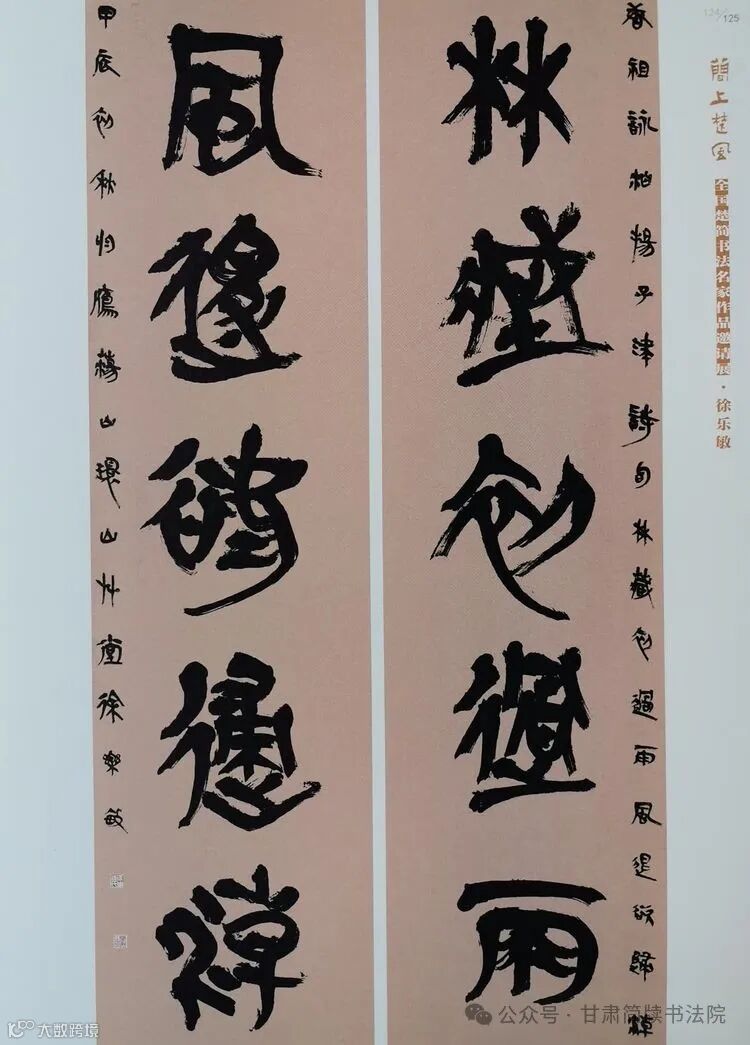 124/125
簡上楚風 全国楚简书法名家作品邀请展·徐乐敏
唐祖詠泊揚子津詩句林藏初過雨風退欲歸潮
林藏初過雨
風退欲歸潮
甲辰初秋鴈蕩山環山艸堂徐樂敏
公众号·甘肃简牍书法院
K○○大数跨境